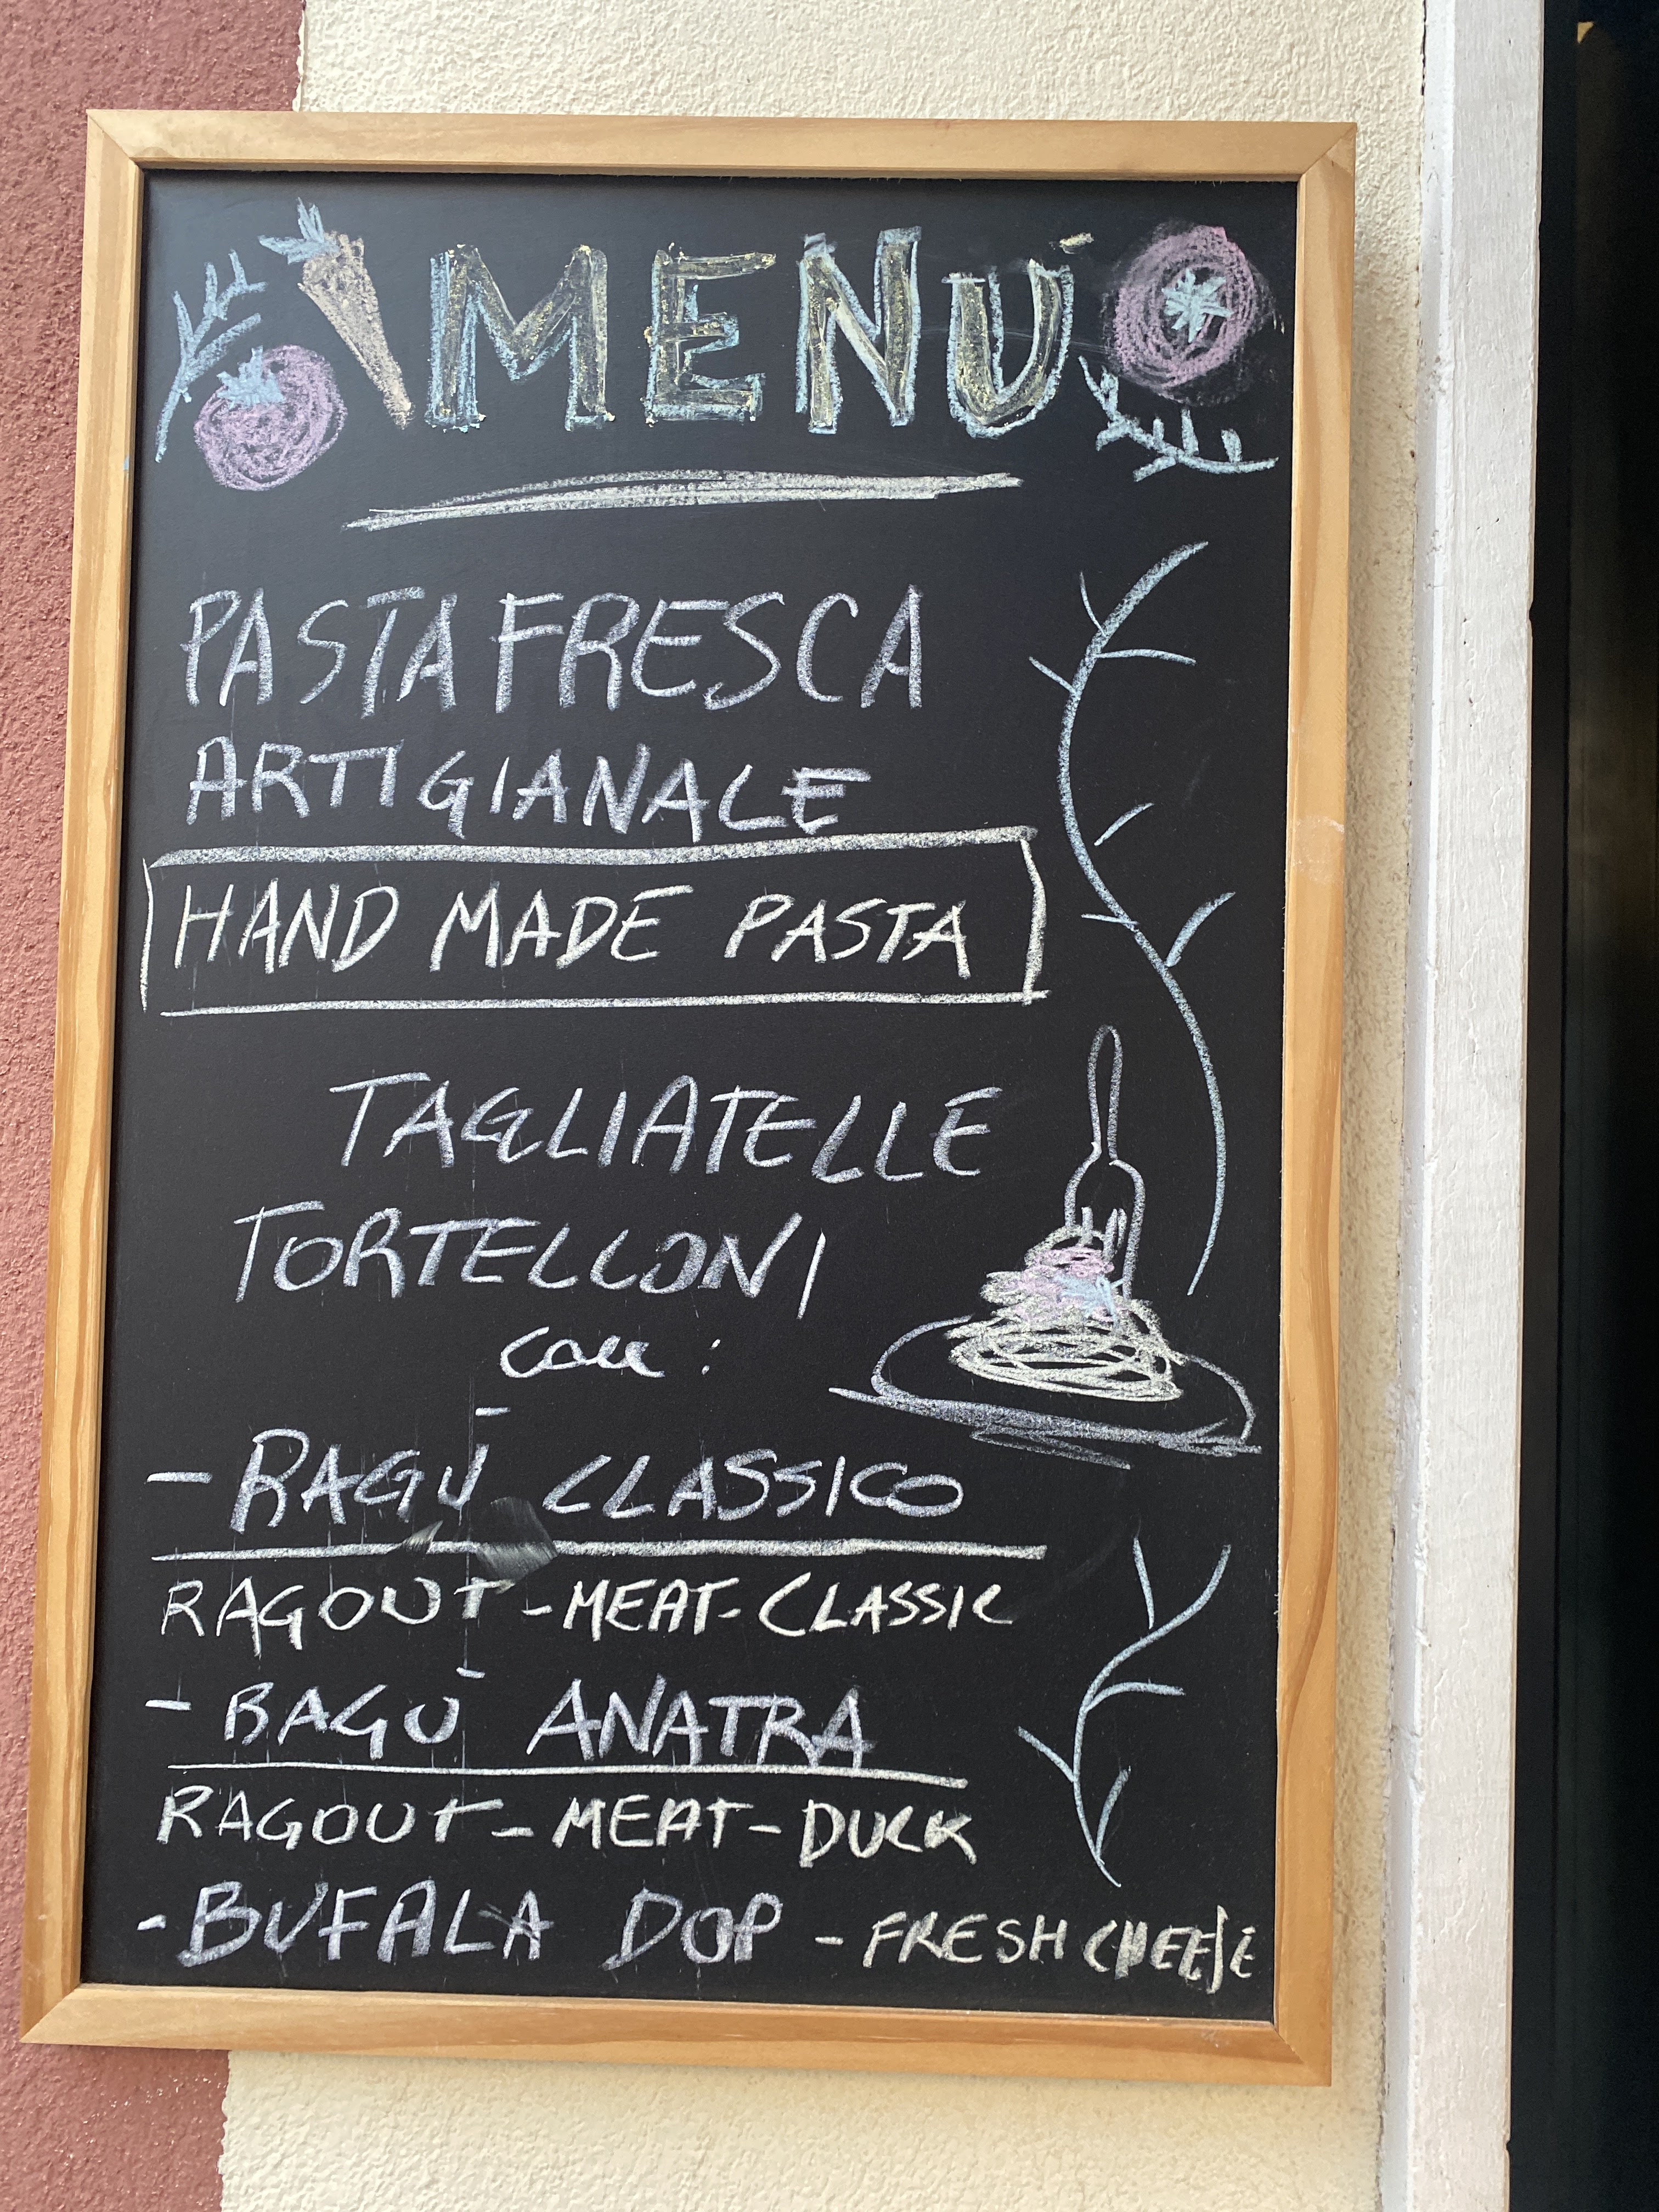 MENÙ
PASTA FRESCA
ARTIGIANALE
HAND MADE PASTA
TAGLIATELLE
TORTELLONI
con :
- RAGÙ CLASSICO
RAGOUT - MEAT - CLASSIC
- RAGÙ ANATRA
RAGOUT - MEAT - DUCK
- BUFALA DOP - FRESH CHEESE